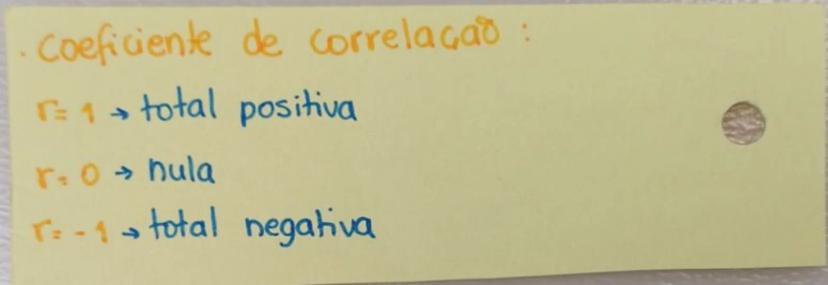 . Coeficiente de correlação :
r = 1 → total positiva
r = 0 → nula
r = - 1 → total negativa